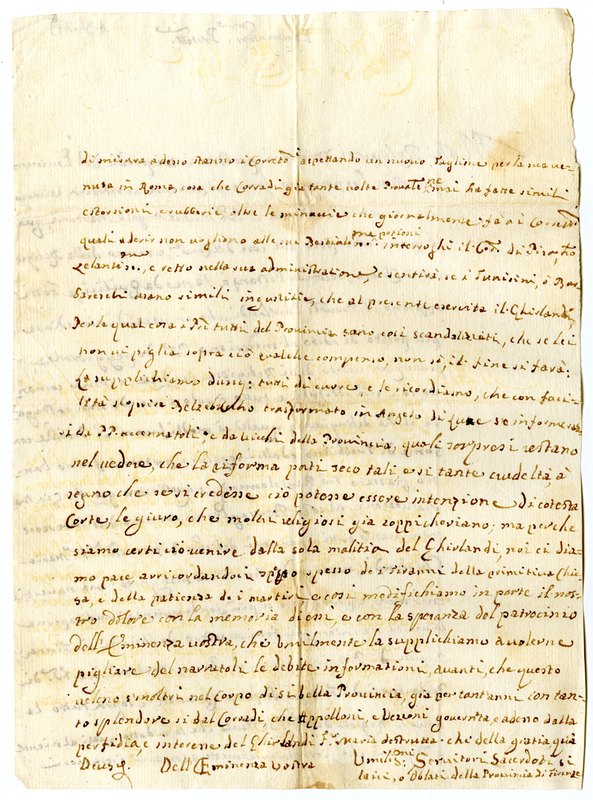 di misura adeno stanno i Corretti aspettando un nuovo per la sua ve-
nuta in Roma, cosa che Corradi già tante volte mai ha fatte simili
estorsioni, e rubberie, oltre le minacie che giornalmente fà a i
quali aderir non vogliono alle sue interroghi il di
Zelantis.mo, e retto nella sua administratione, e sentirà, se i Tunisini, ò Bar-
bareschi usano simili ingiustitie, che al presente esercita il Ghirlandi,
Per la qual cosa i PP.ri tutti del Provincia sono così scandalizati, che se lei
non vi piglia sopra ciò qualche compenso, non sò, il fine si farà:
La supplichiamo dunq: tutti di cuore, e le ricordiamo, che con faci-
lità scoprire Belzebucho trasformato in Angelo di luce se informerà
si da PP. accennatoli, e da vecchi della Provincia, quali sorpresi restano
nel vedere, che la riforma porti seco tali e si tante crudeltà à
segno che se si credesse ciò potesse essere intenzione di cotesta
Corte, le giuro, che molti religiosi già zoppicheriano; ma perche
siamo certi ciò venire dalla sola malitia del Ghirlandi, noi ci dia-
mo pace, arricordandoci spesso de i Tiranni della primitiva Chie-
sa, e della patienza de i martiri e così modifichiamo in parte il nos-
tro dolore con la memoria di oni, e con la speranza del patrocinio
dell'Eminenza vostra, che Umilmente la supplichiamo a volerne
pigliare del narratoli le debite informationi, avanti, che questo
veleno s'inoltri nel Corpo di sì bella Provincia, già per tant'anni con tan-
to splendore sì dal Corradi, che Appolloni, e Veroni governata, e adeno dalla
perfidia, e interesse del Ghirlandi F. Maria destrutta. che della gratia quà
Deus q. Dell'Eminenza vostra Umilis.mi Servitori Sacerdoti si
laici, o Oblati della Provincia di Firenze